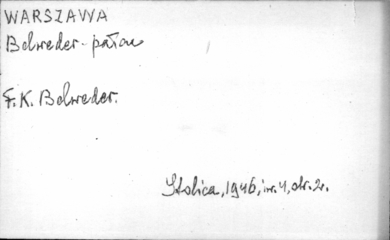 WARSZAWA
Belweder - pałac
F.K. Belweder.
Stolica, 1946, nr. 4, str. 2.